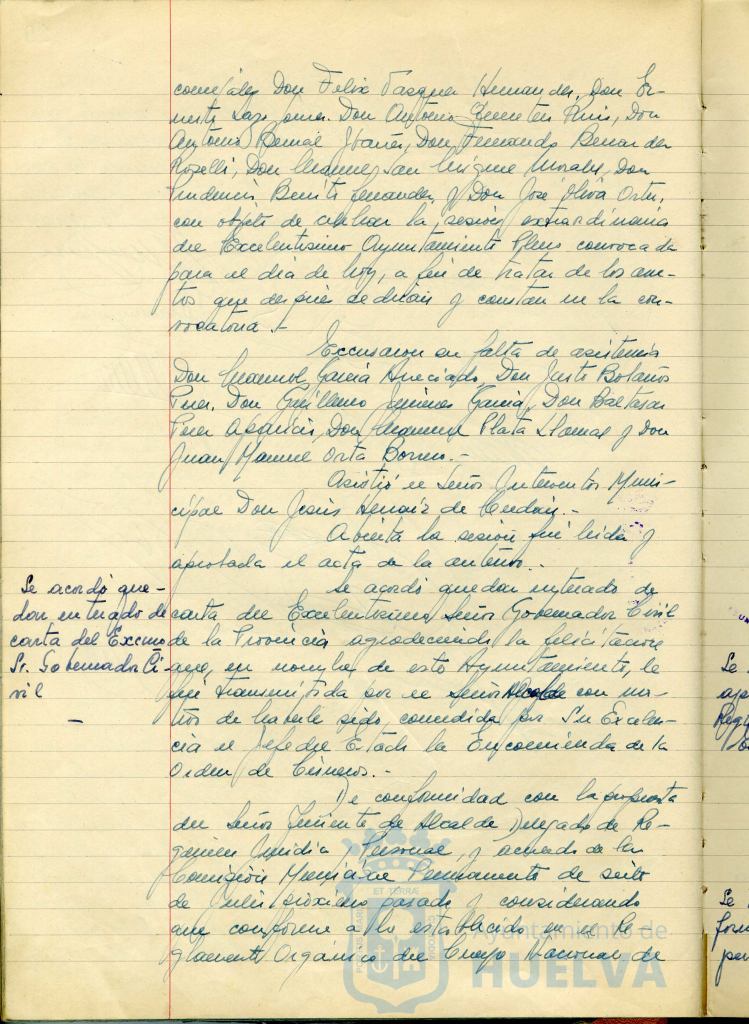 concejales Don Felix Vasquez Hernandez, Don Er-
nesto Lazo Don Antonio Ruis, Don
Antonio Bernal Ibañes, Don Fernando Benar der
Rozelli, Don Manuel San Miguel Morales, Don
Prudencio Benito Fernandez y Don José Oliva Orta,
con objeto de celebrar la sesión extraordinaria
del Excelentisimo Ayuntamiento Pleno convocada
para el dia de hoy, a fin de tratar de los asun-
tos que después se dirán y constan en la con-
vocatoria.-
Excusaron su falta de asistencia
Don Manuel Garcia Don Justo Bolaños
Perez. Don Guillermo Jimenez Garcia, Don Baltasar
Perez Aparicio, Don Manuel Plata Llamas y Don
Juan Manuel Orta Borrero.-
Asistió el Señor Interventor Muni-
cipal Don Jesús de Cerdán.-
Abierta la sesión fué leida y
aprobada el acta de la anterior.-
Se acordó que-
dar enterado de
carta del Excmo
Sr. Gobernador Ci-
vil
-
Se acordó quedar enterado de
carta del Excelentisimo Señor Gobernador Civil
de la Provincia agradeciendo la felicitación
que, en nombre de este Ayuntamiento, le
fué transmitida por el Señor Alcalde con mo-
tivo de haberle sido concedida por Su Excelen-
cia el Jefe del Estado la Encomienda de la
Orden de Cisneros.-
De conformidad con la propuesta
del Señor Teniente de Alcalde Delegado de Re-
gimen Juridico y Personal, y acuerdo de la
Comisión Municipal Permanente de seis
de Julio próximo pasado y considerando
que conforme a lo establecido en el Re-
glamento Orgánico del Cuerpo Nacional de
Se
Se
for
per
Ayuntamiento de
HUELVA